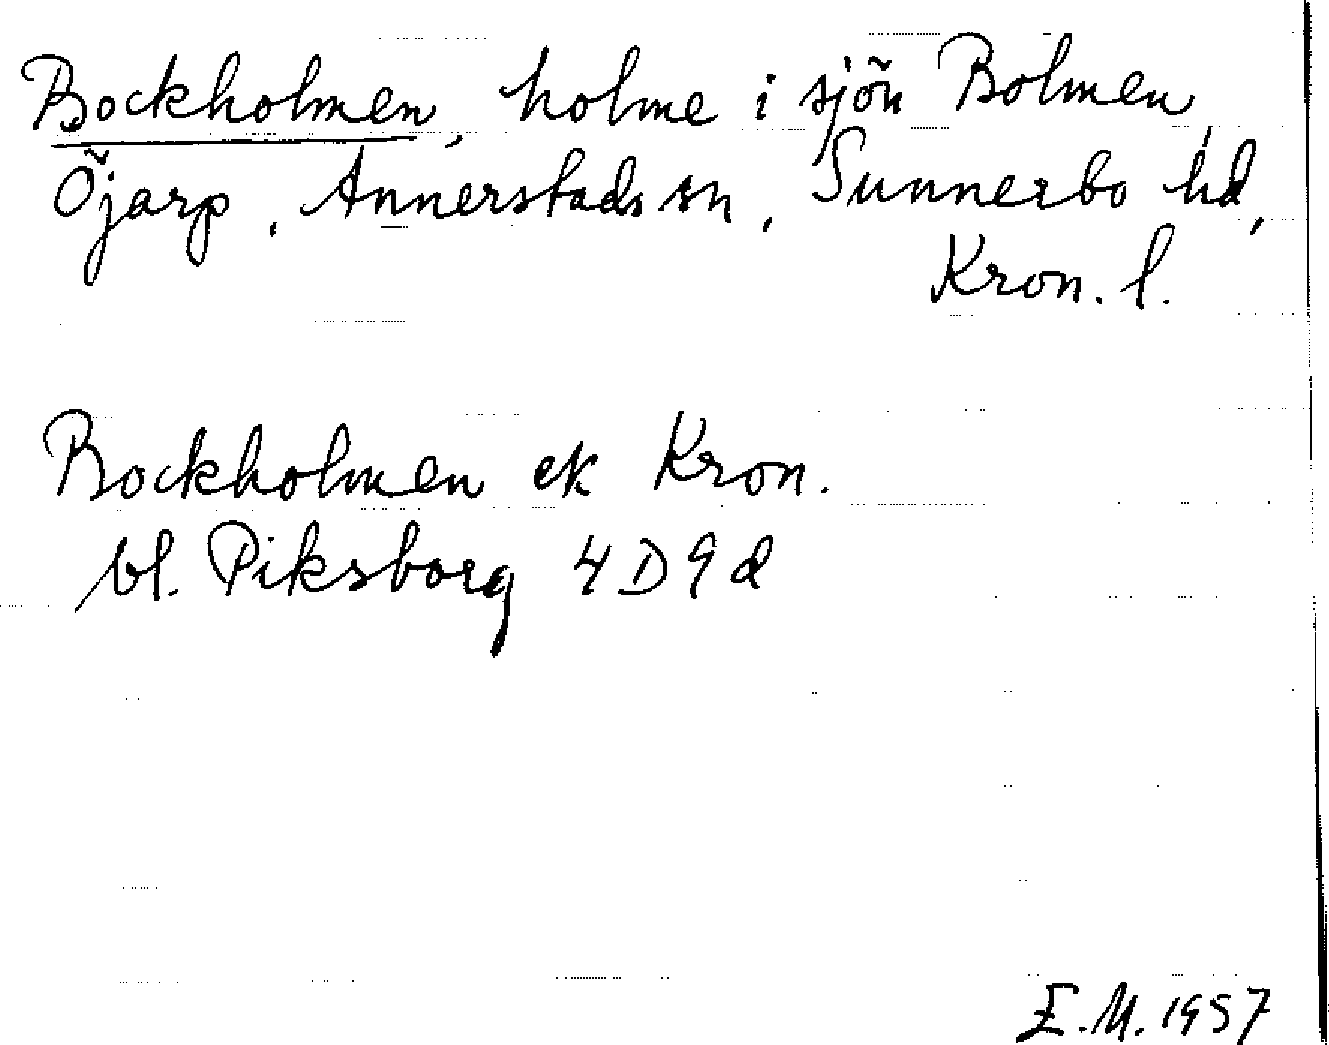 Bockholmen, holme i sjön Bolmen,
Öjarp, Annerstads sn, Sunnerbo hd,
Kron. l.
Bockholmen ek Kron.
bl. Piksborg 4D9d
E.M. 1957